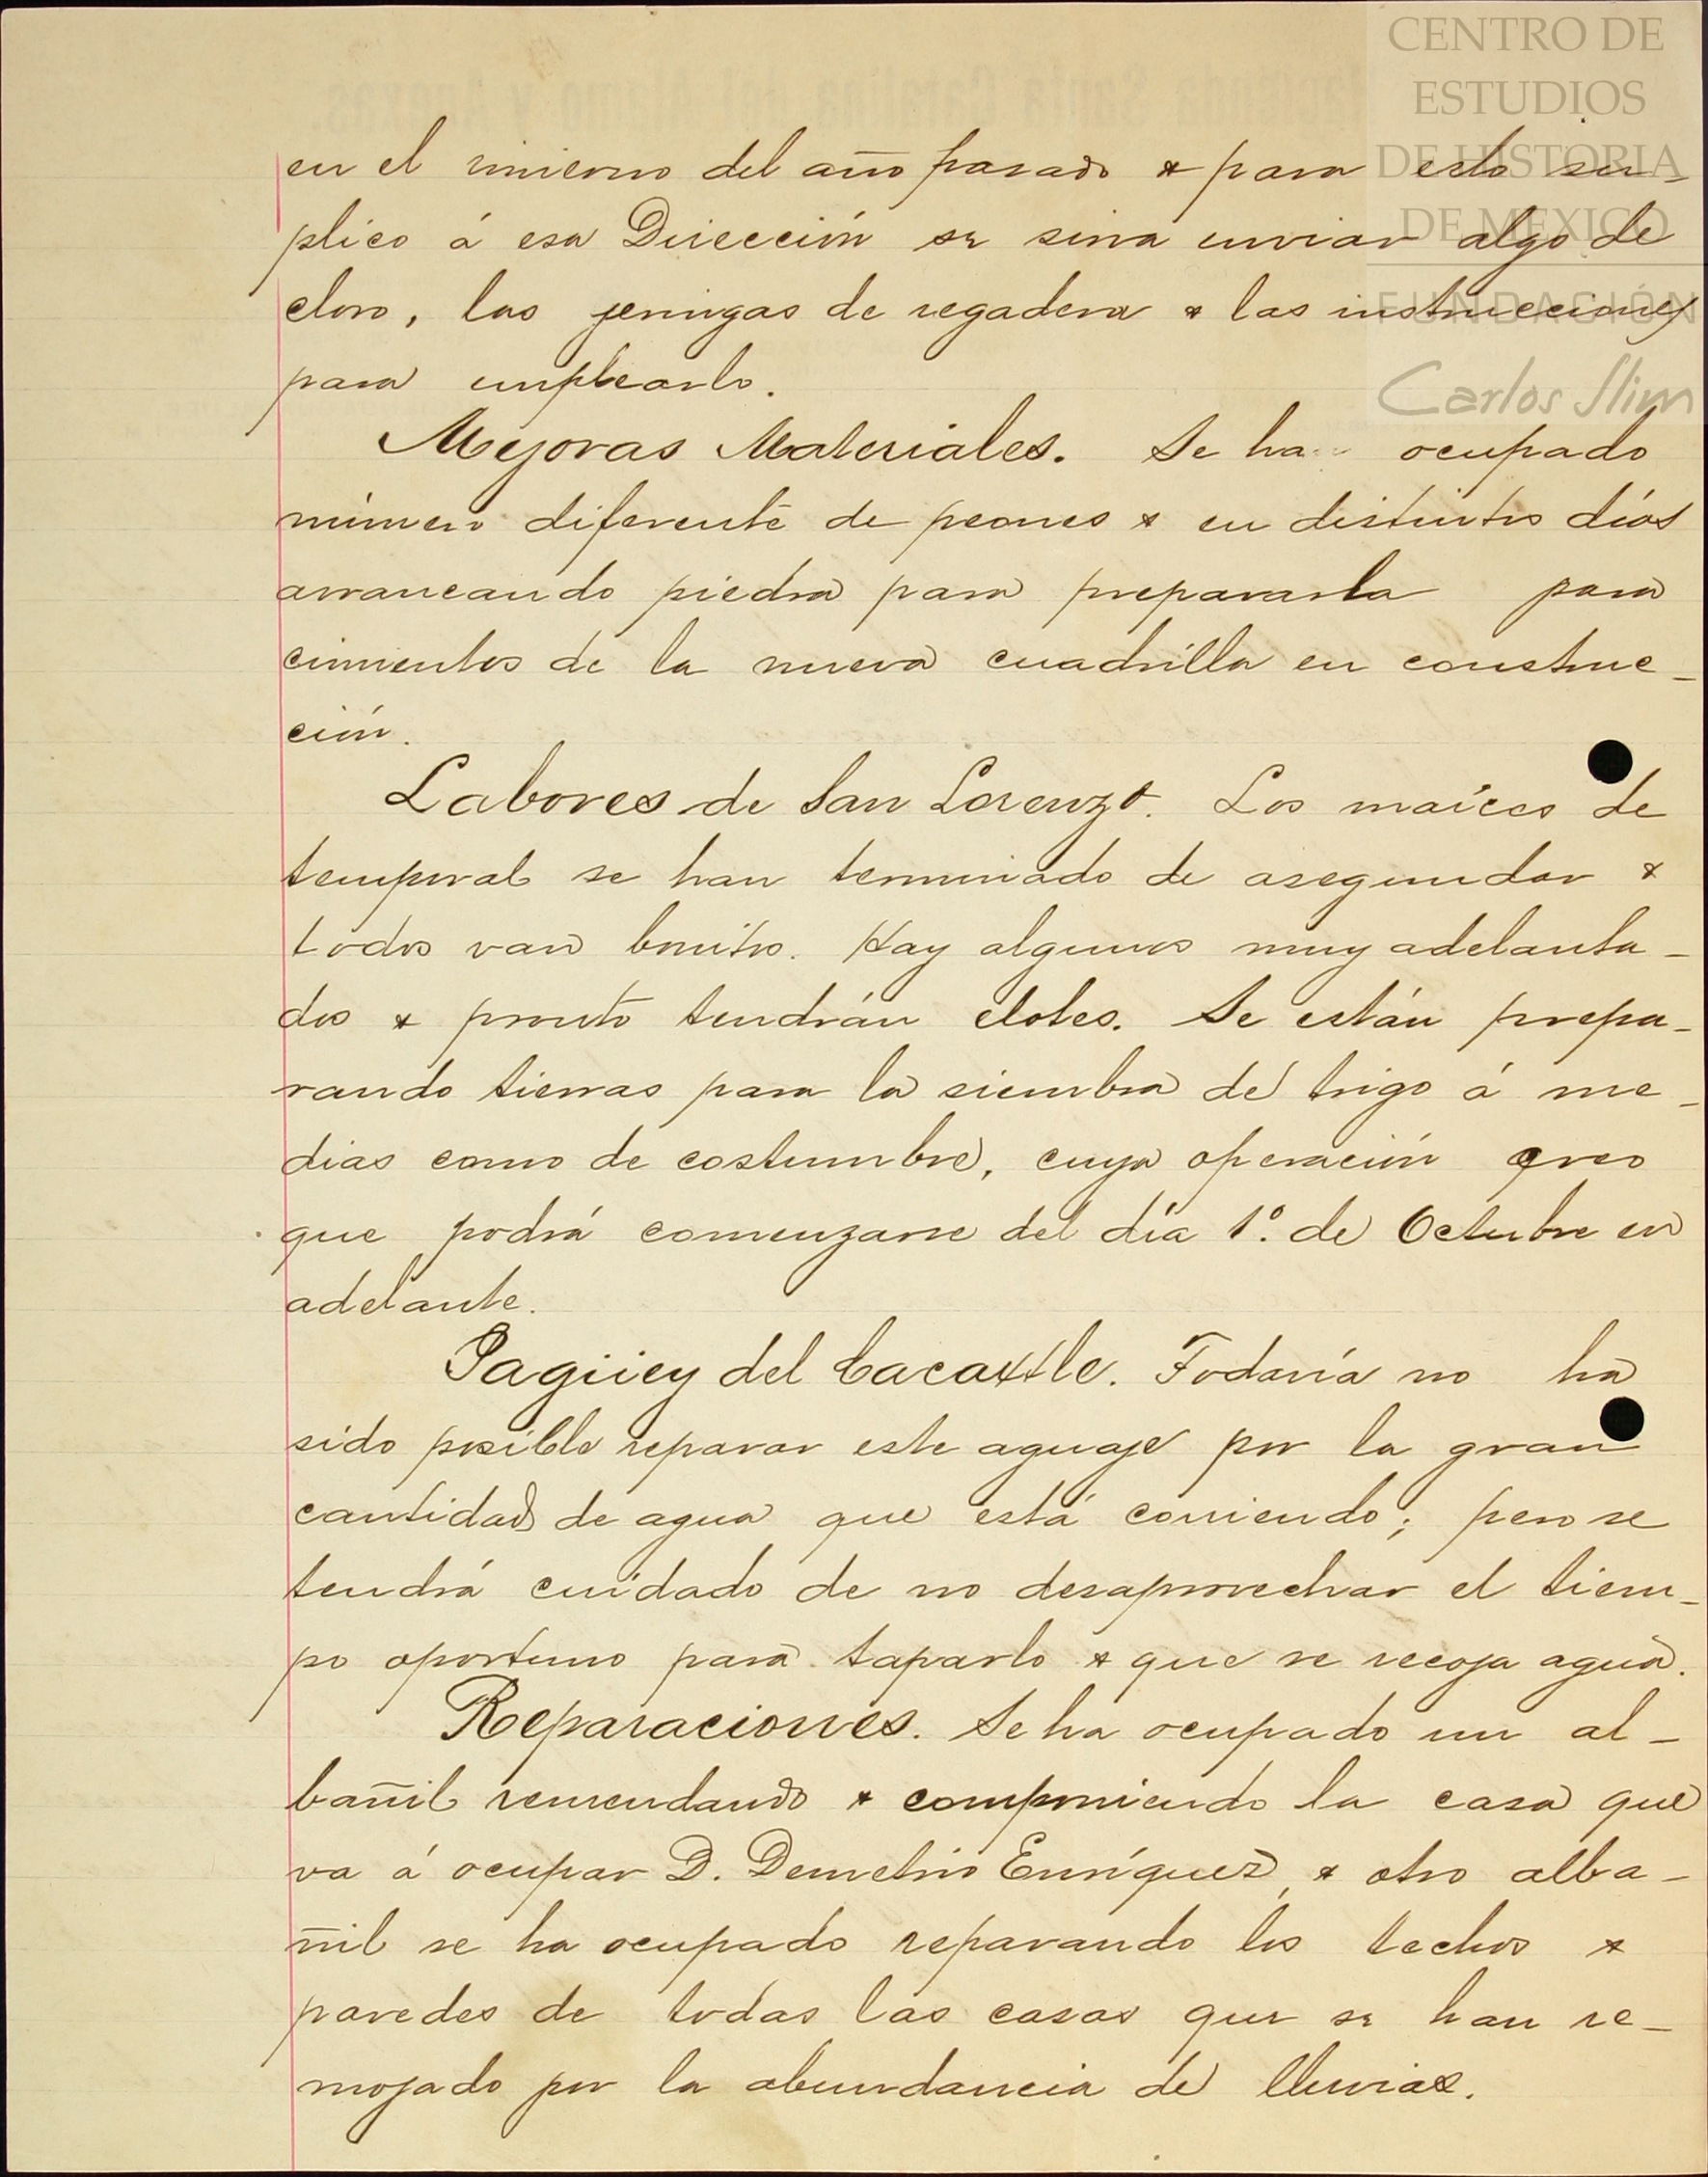 CENTRO DE
ESTUDIOS
DE HISTORIA
DE MEXICO
FUNDACIÓN
Carlos Slim
Hacienda Santa Catalina del Alamo y Anexas.
en el invierno del año pasado & para esto su-
plico á esa Dirección se sirva enviar algo de
cloro, las jeringas de regadera & las instrucciones
para emplearlo.
Mejoras Materiales. Se ha ocupado
número diferente de peones & en distintos días
arrancando piedra para prepararla para
cimientos de la nueva cuadrilla en construc-
ción.
Labores de San Lorenzo. Los maíces de
temporal se han terminado de asegundar &
todos van bonitos. Hay algunos muy adelanta-
dos & pronto tendrán elotes. Se están prepa-
rando tierras para la siembra de trigo á me-
dias como de costumbre, cuya operación creo
que podrá comenzarse del día 1º. de Octubre en
adelante.
Jagüey del Cacaxtle. Todavía no ha
sido posible reparar este aguaje por la gran
cantidad de agua que está corriendo; pero se
tendrá cuidado de no desaprovechar el tiem-
po oportuno para taparlo & que se recoja agua.
Reparaciones. Se ha ocupado un al-
bañil remendando & componiendo la casa que
va á ocupar D. Demetrio Enríquez, & otro alba-
ñil se ha ocupado reparando los techos &
paredes de todas las casas que se han re-
mojado por la abundancia de lluvias.